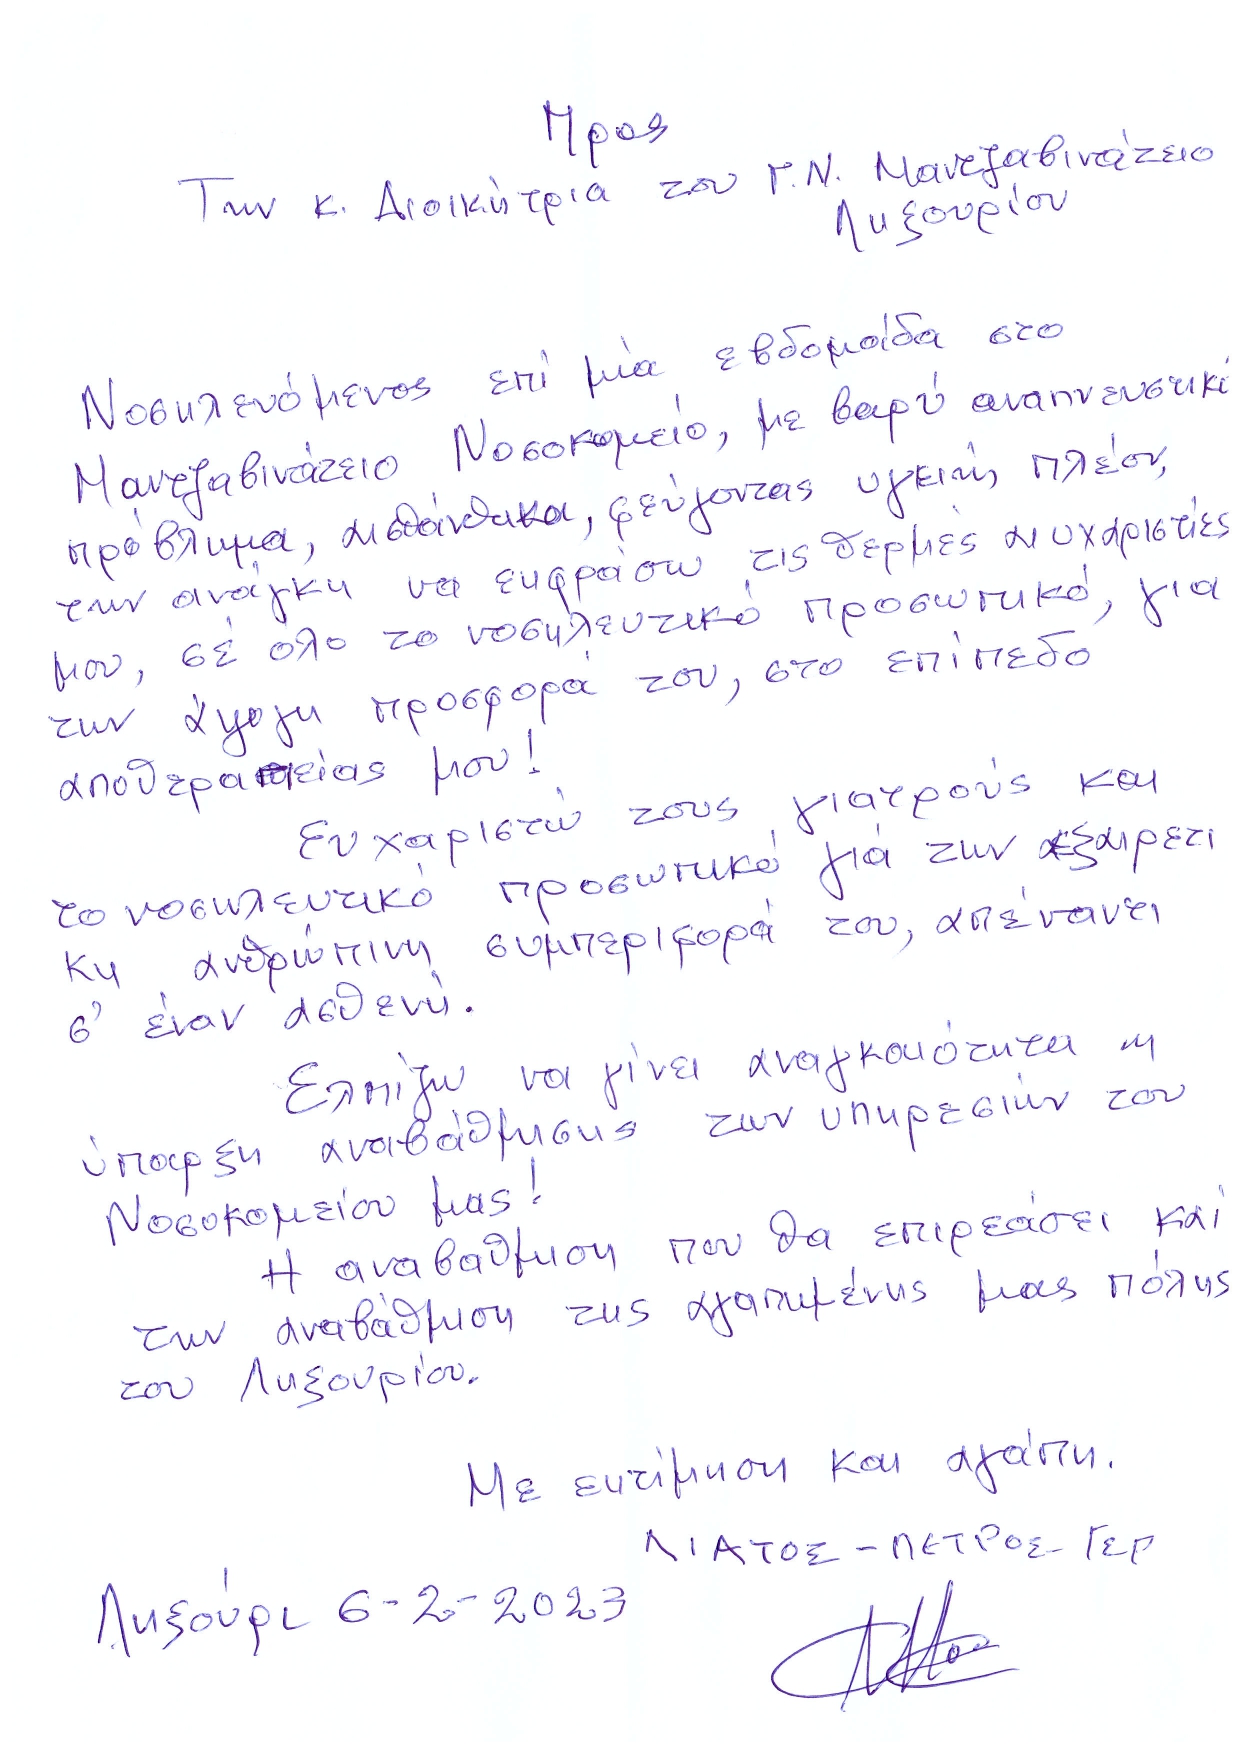 Προς
Την κ. Διοικήτρια του Γ.Ν. Μαντζαβινάτειο
Ληξουρίου
Νοσηλευόμενος επί μία εβδομάδα στο
Μαντζαβινάτειο Νοσοκομείο, με βαρύ αναπνευστικό
πρόβλημα, αισθάνθηκα, φεύγοντας υγειής πλέον,
την ανάγκη να εκφράσω τις θερμές ευχαριστίες
μου, σέ όλο το νοσηλευτικό προσωπικό, για
την άψογη προσφορά του, στο επίπεδο
αποθεραπείας μου!
Ευχαριστώ τους γιατρούς και
το νοσηλευτικό προσωπικό γιά την εξαιρετι
κη ανθρώπινη συμπεριφορά του, απέναντι
σ' έναν ασθενή.
Ελπίζω να γίνει αναγκαιότητα η
ύπαρξη αναβάθμησης των υπηρεσιών του
Νοσοκομείου μας!
Η αναβαθμιση που θα επιρεάσει και
την αναβάθμιση της αγαπημένης μας πόλης
του Ληξουρίου.
Με εκτίμηση και αγάπη.
ΛΙΑΤΟΣ-ΠΕΤΡΟΣ-ΓΕΡ
Ληξούρι 6-2-2023